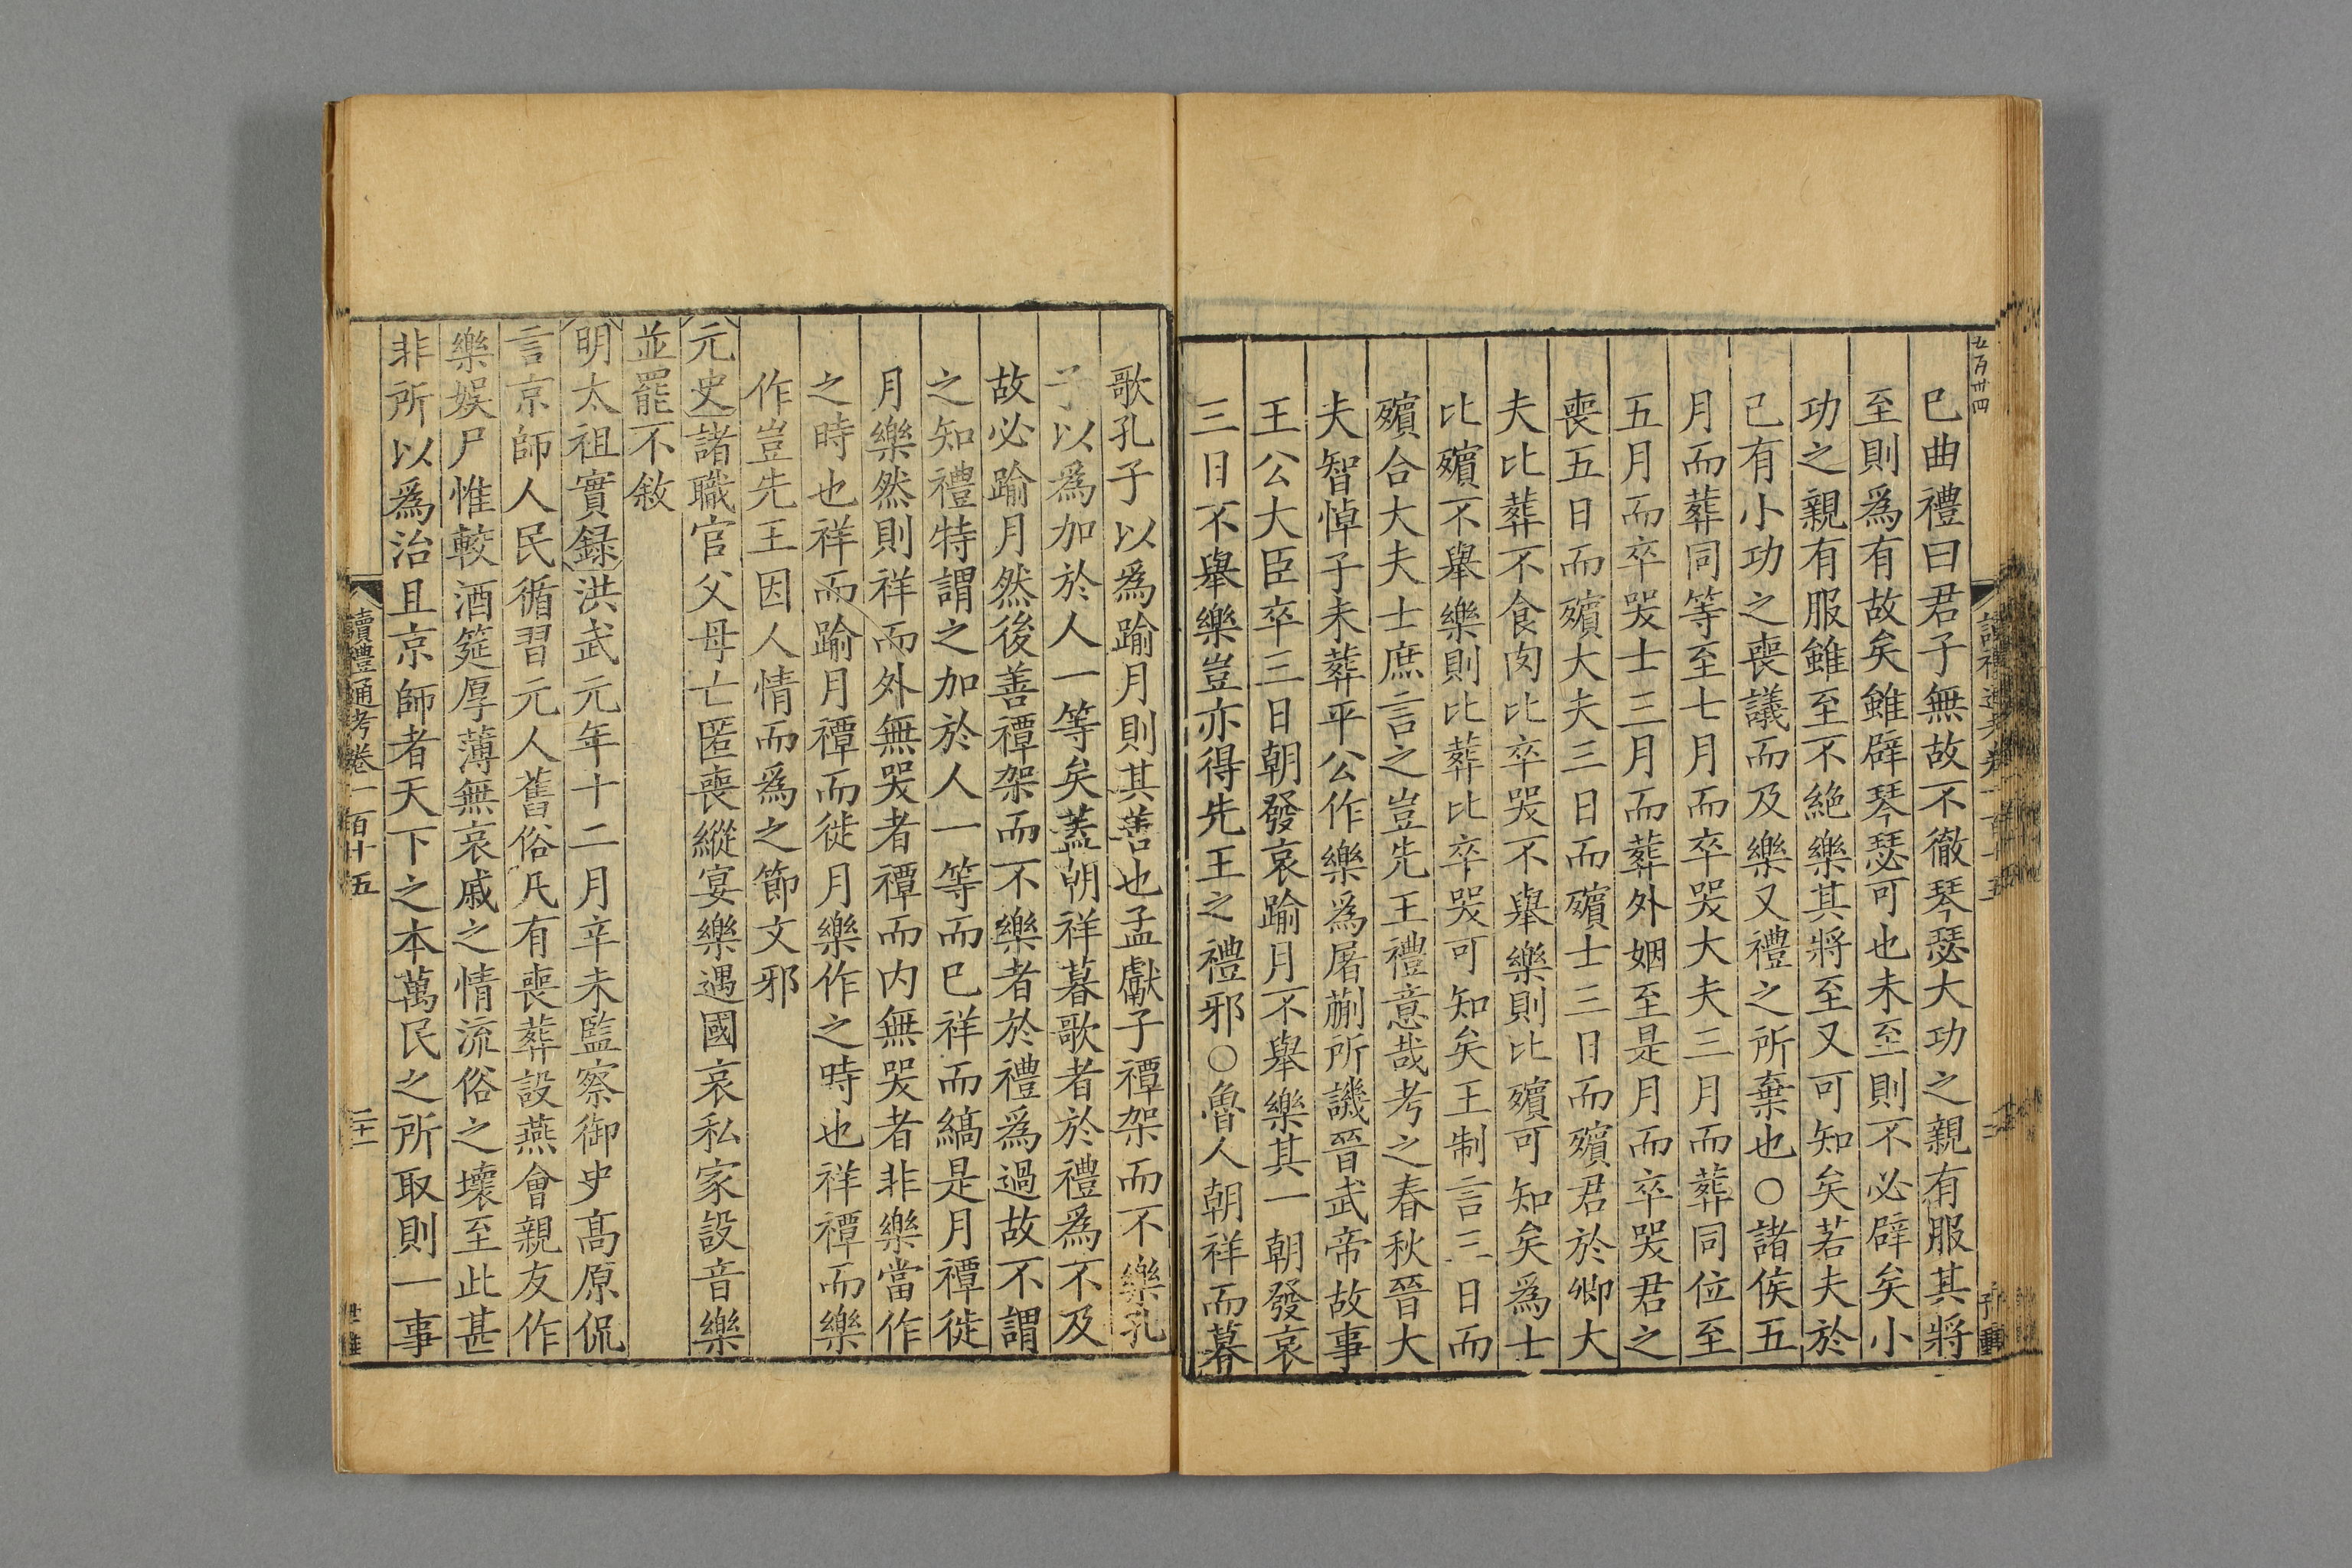 巳曲禮曰君子無故不徹琴瑟大功之親有服其將
至則爲有故矣雖辟琴瑟可也未至則不必辟矣小
功之親有服雖至不絶樂其將至又可知矣若夫於
己有小功之喪議而及樂又禮之所棄也○諸侯五
月而葬同等至七月而卒哭大夫三月而葬同位至
五月而卒哭士三月而葬外姻至是月而卒哭君之
喪五日而殯大夫三日而殯士三日而殯君於卿大
夫比葬不食肉比卒哭不舉樂則比殯可知矣爲士
比殯不舉樂則比葬比卒哭可知矣王制言三日而
殯合大夫士庶言之豈先王禮意哉考之春秋晉大
夫智悼子未葬平公作樂爲屠蒯所譏晉武帝故事
王公大臣卒三日朝發哀踰月不舉樂其一朝發哀
三日不舉樂豈亦得先王之禮邪○魯人朝祥而暮
歌孔子以爲踰月則其善也孟獻子禫架而不樂孔
子以爲加於人一等矣蓋朝祥暮歌者於禮爲不及
故必踰月然後善禫架而不樂者於禮爲過故不謂
之知禮特謂之加於人一等而巳祥而縞是月禫徙
月樂然則祥而外無哭者禫而内無哭者非樂當作
之時也祥而踰月禫而徙月樂作之時也祥禫而樂
作豈先王因人情而爲之節文邪
元史諸職官父母亡匿喪縱宴樂遇國哀私家設音樂
並罷不敘
明太祖實録洪武元年十二月辛未監察御史高原侃
言京師人民循習元人舊俗凡有喪葬設燕會親友作
樂娱尸惟較酒筵厚薄無哀戚之情流俗之壞至此甚
非所以爲治且京師者天下之本萬民之所取則一事
讀禮通考卷一百十五
二十一